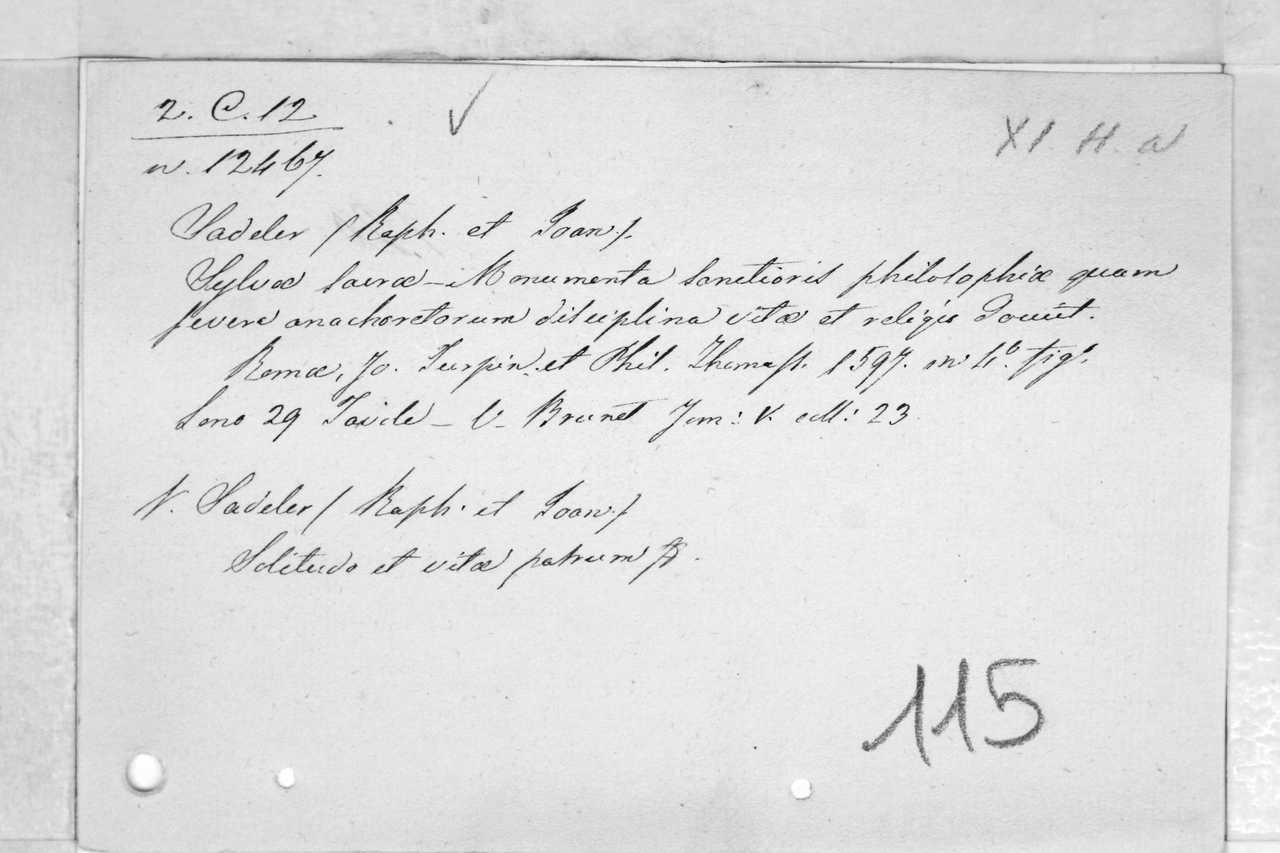 2. C. 12
XI. H. a
n. 12467.
Sadeler (Raph. et Joan.).
Sylvæ sacræ - Monumenta sanctioris philosophiæ quam
severa anachoretarum disciplina vitæ et religio docuit.
Romæ, Jo. Turpin. et Phil. Thomass. 1597. in 4.º fig.
Sono 29 Tavole - V. Brunet Tom: V. coll: 23
V. Sadeler (Raph. et Joan.)
Solitudo et vitæ patrum
115